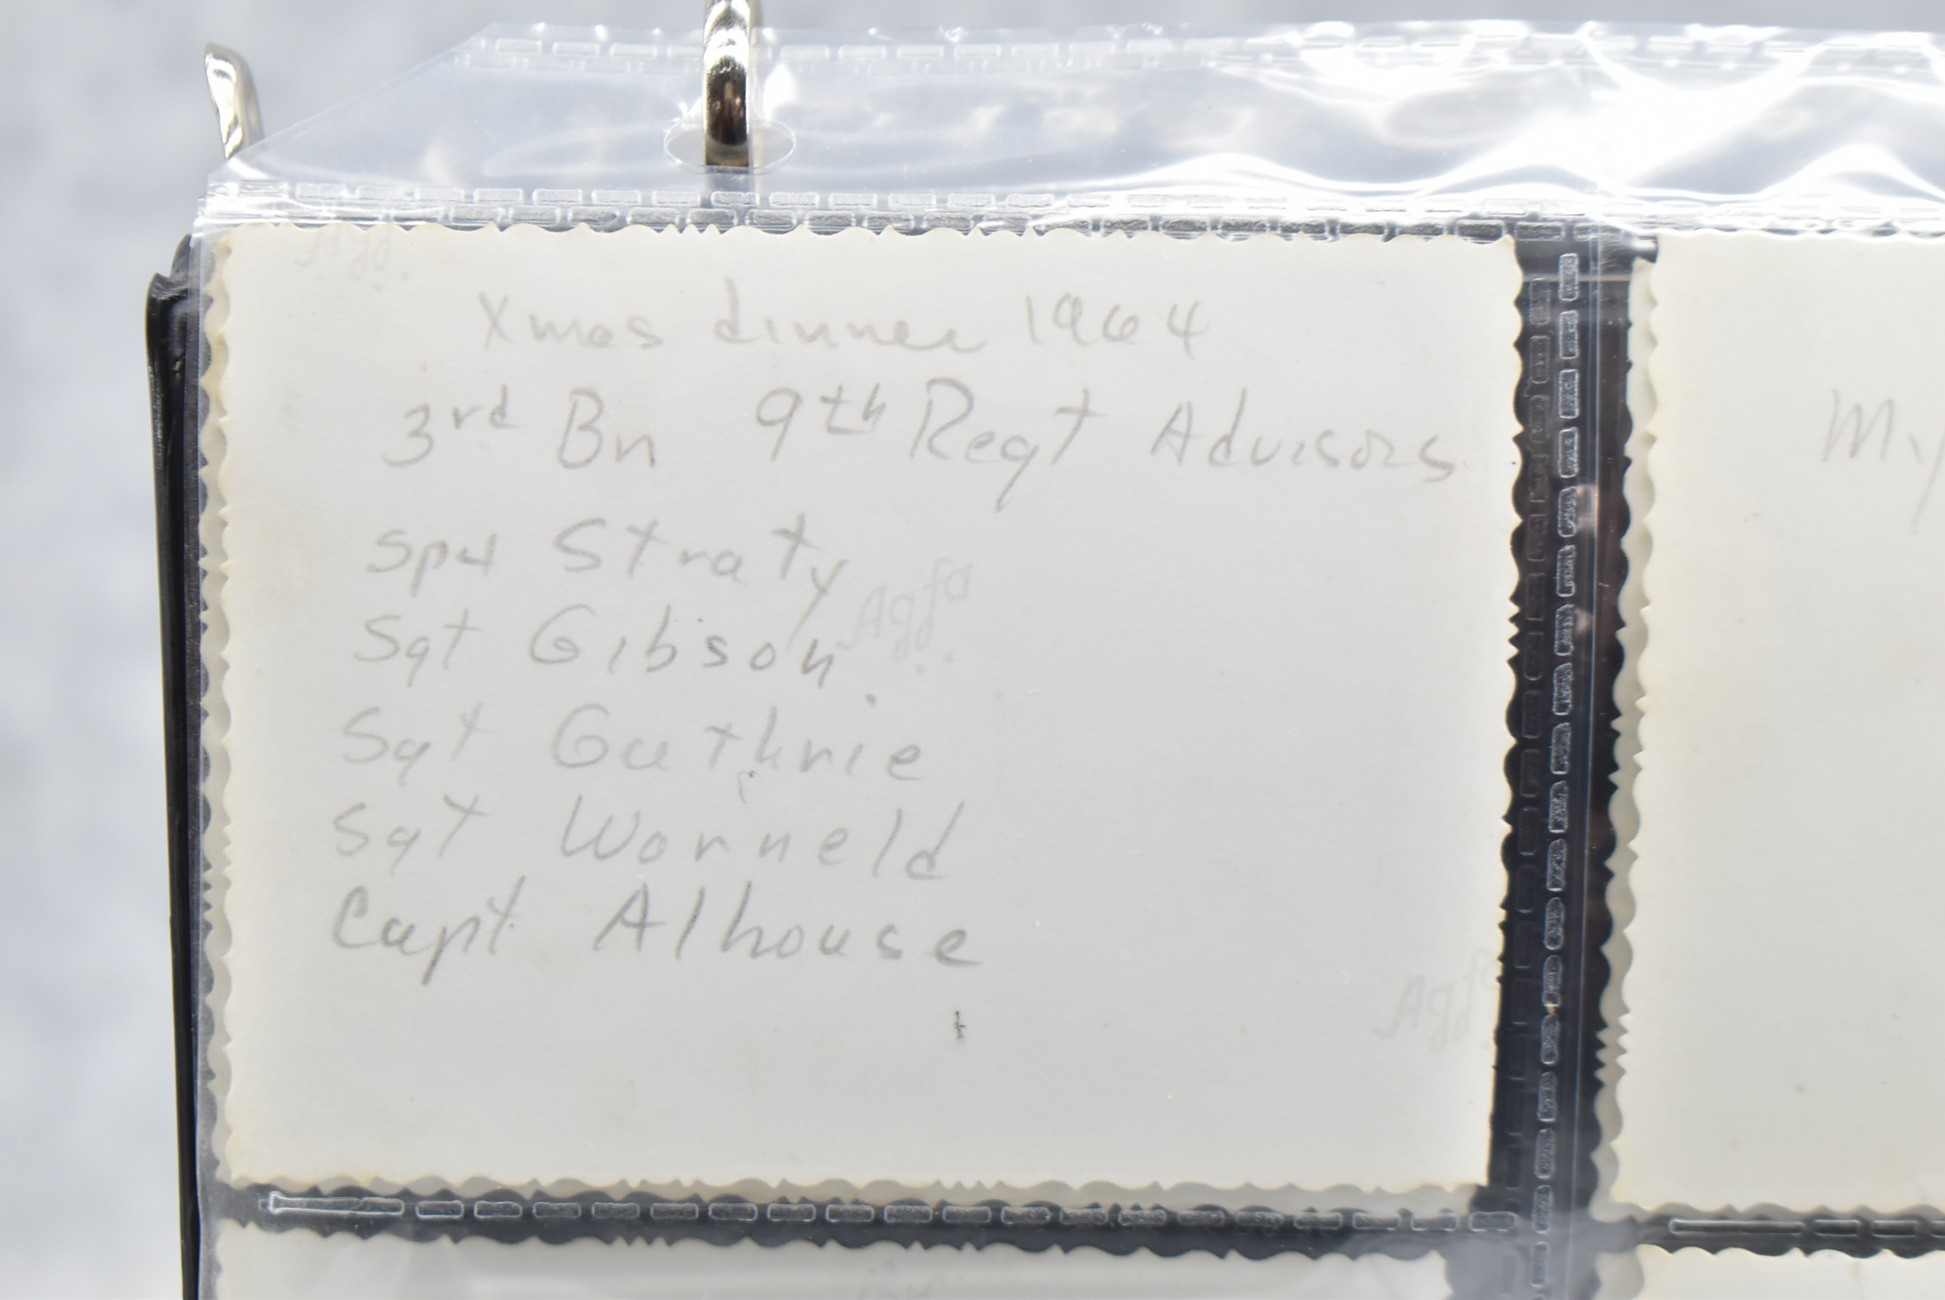 Agfa
Xmas dinner 1964
3rd Bn 9th Regt Advisors
Sp4 Straty
Agfa
Sgt Gibson
Sgt Guthrie
Sgt Worneld
Capt Alhouse
Agfa
My